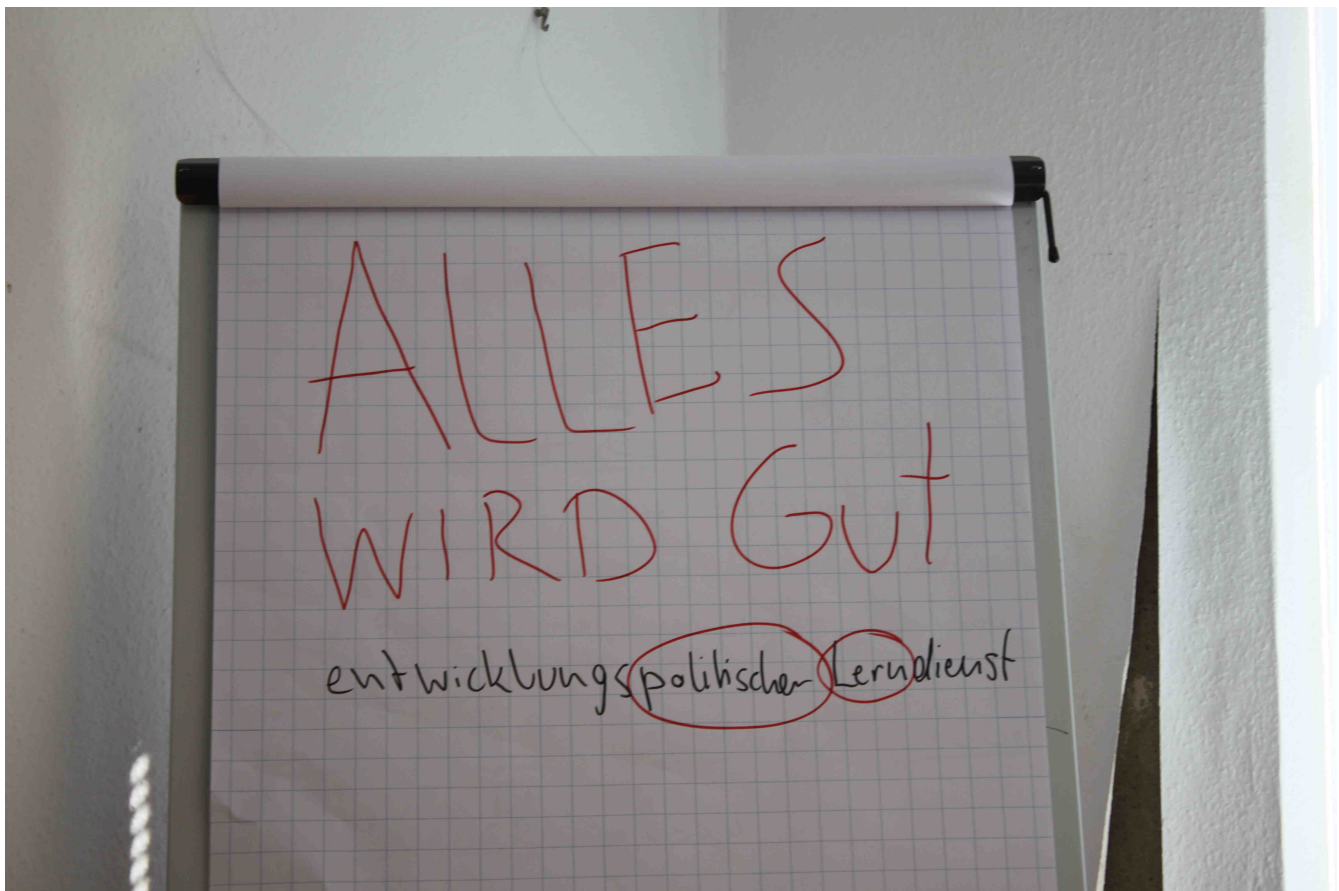 ALLES
WIRD GUt
entwicklungspolitischer Lerndienst